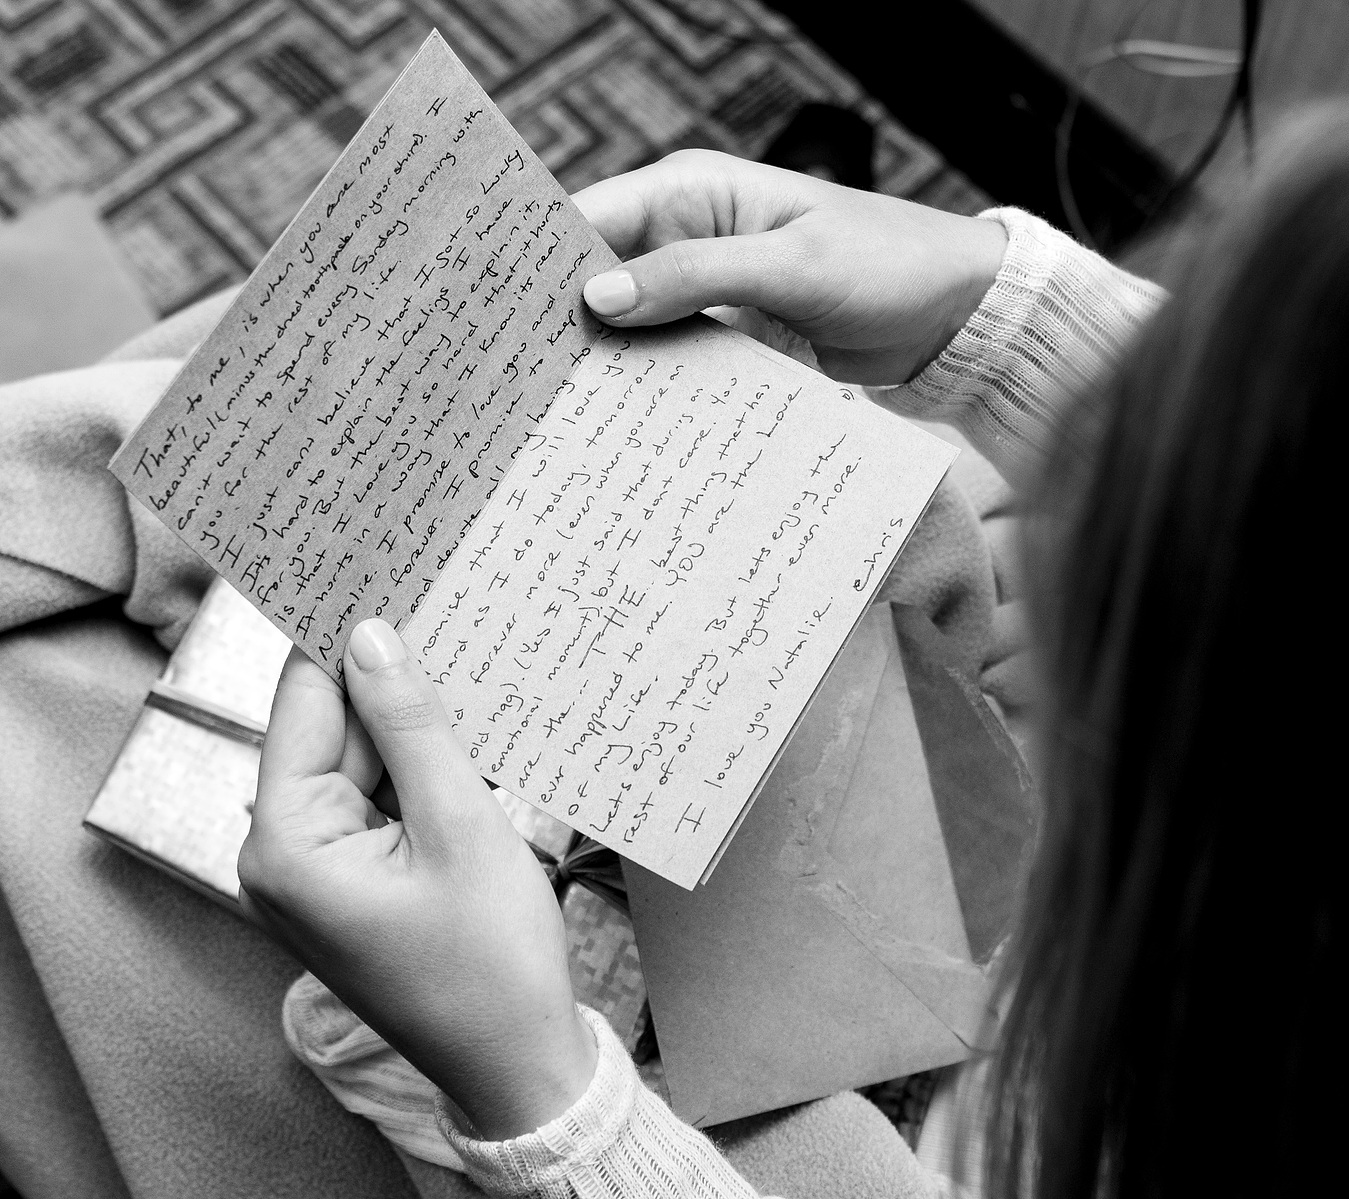 That, to me, is when you are most
beautiful (minus the dried toothpaste on your shirt). I
can't wait to spend every Sunday morning with
you for the rest of my life.
I just cant believe that I got so lucky
Its hard to explain the feelings I have
for you. But the best way to explain it,
is that I love you so hard that it hurts
It hurts in a way that I know its real.
Natalie. I promise to love you and care
you forever. I promise to keep
and devote all my being to
promise that I will love you
hard as I do today, tomorrow
forever more (even when you are an
old hag). (Yes I just said that during an
emotional moment) but I dont care. You
are the... THE best thing that has
ever happened to me. YOU are the Love
of my Life.
Lets enjoy today. But lets enjoy the
rest of our life together even more.
I love you Natalie.
chris